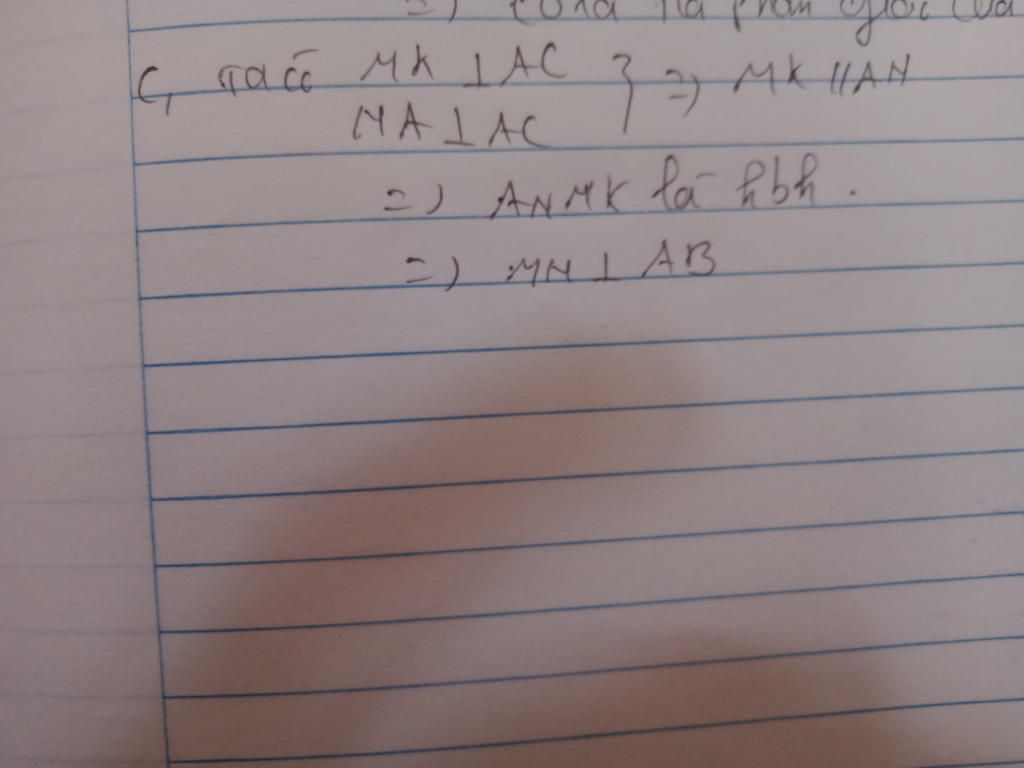 =) là phân giác của
C, Ta có MK ⊥ AC } =) MK // AN
NA ⊥ AC
=) ANMK là hbh.
=) MN ⊥ AB